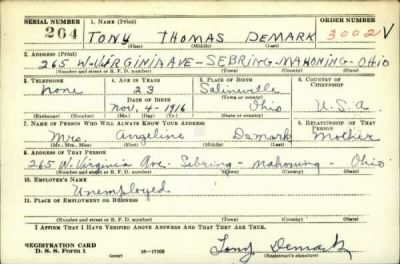 SERIAL NUMBER 1. NAME (Print) ORDER NUMBER
264 TONY THOMAS DEMARK 3002V
(First) (Middle) (Last)
2. ADDRESS (Print)
265 W-VIRGINIA AVE - SEBRING - MAHONING - OHIO
(Number and street or R. F. D. number) (Town) (County) (State)
3. TELEPHONE 4. AGE IN YEARS 5. PLACE OF BIRTH 6. COUNTRY OF CITIZENSHIP
none 23 Salineville
DATE OF BIRTH (Town or county)
Nov. 4 - 1916 Ohio U.S.A.
7. NAME OF PERSON WHO WILL ALWAYS KNOW YOUR ADDRESS 8. RELATIONSHIP OF THAT PERSON
Mrs. Angeline Demark Mother
(Mr., Mrs., Miss) (First) (Middle) (Last)
9. ADDRESS OF THAT PERSON
265 W. Virginia Ave. - Sebring - Mahoning - Ohio
(Number and street or R. F. D. number) (Town) (County) (State)
10. EMPLOYER'S NAME
Unemployed
11. PLACE OF EMPLOYMENT OR BUSINESS
(Number and street or R. F. D. number) (Town) (County) (State)
I AFFIRM THAT I HAVE VERIFIED ABOVE ANSWERS AND THAT THEY ARE TRUE.
REGISTRATION CARD
D. S. S. Form 1 (over) 16-17105 Tony Demark
(Registrant's signature)